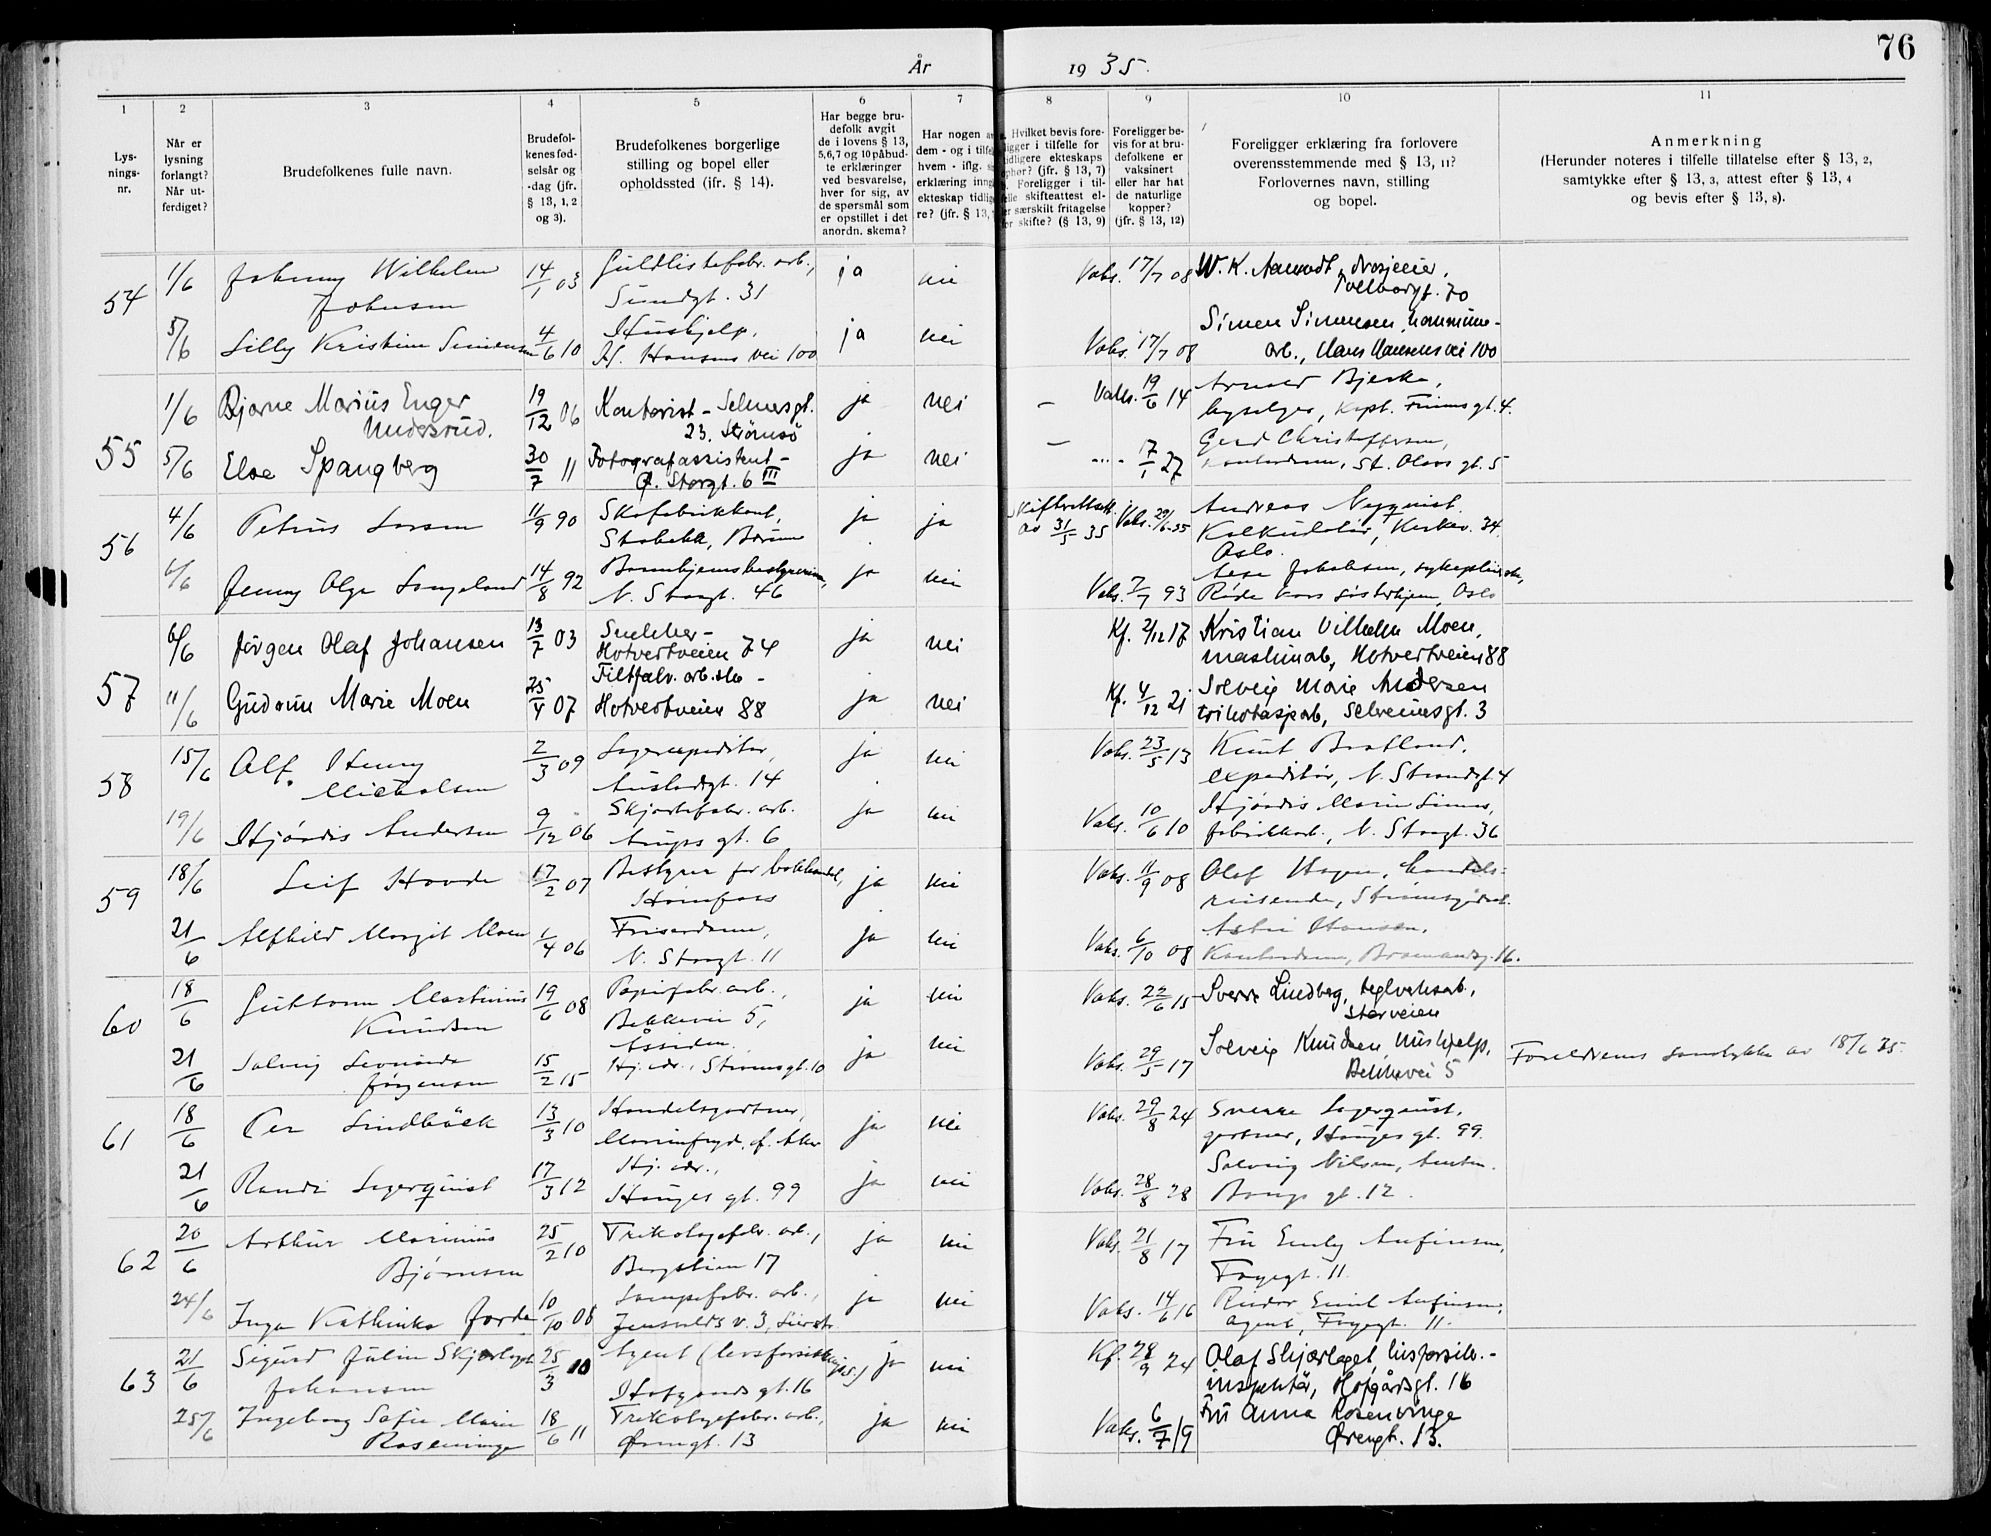 76
År 1935.
1 2 3 4 5 6 7 8 9 10 11
Lys-
nings-
nr.
Når er
lysning
forlangt?
Når ut-
ferdiget?
Brudefolkenes fulle navn.
Brudefol-
kenes fød-
selsår og
-dag (jfr.
§ 13, 1, 2
og 3).
Brudefolkenes borgerlige
stilling og bopel eller
opholdssted (ifr. § 14).
Har begge bru-
defolk avgit
de i lovens § 13,
5,6,7 og 10 påbud-
te erklæringer
ved besvarelse,
hver for sig, av
de spørsmål som
er opstillet i det
anordn. skema?
Har nogen
dem - og i
hvem - iflg.
erklæring
ekteskap
re? (jfr. § 13,
Hvilket bevis fore-
ligger i tilfelle for
tidligere ekteskaps
ophør? (jfr. § 13, 7)
Foreligger i til-
felle skifteattest el-
ler særskilt fritagelse
for skifte? (§ 13, 9)
Foreligger be-
vis for at bru-
defolkene er
vaksinert
eller har hat
de naturlige
kopper?
(jfr. § 13, 12)
Foreligger erklæring fra forlovere
overensstemmende med § 13, 11?
Forlovernes navn, stilling
og bopel.
Anmerkning
(Herunder noteres i tilfelle tillatelse efter § 13, 2,
samtykke efter § 13, 3, attest efter § 13, 4
og bevis efter § 13, 8).
54 1/6 Johnny Wilhelm 14/1 03 Guldlistefabr. arb., ja nei Vaks. 17/7 08 W. K. Aamodt, drosjeeier,
Johnsen Sundgt. 31 Tollbodgt. 70
5/6 Lilly Kristine Simensen 4/6 10 Hushjelp, ja nei Vaks. 17/7 08 Simen Simensen, kommune-
H. Hansens vei 100 arb., Hans Hansens vei 100
55 1/6 Bjarne Marius Enger 19/12 06 Kontorist - Selmersgt. ja nei - Vaks. 19/6 14 Arnold Bjerke,
Undersrud. 23. Strømsö
5/6 Else Spangberg 30/7 11 Fotografassistent - ja nei - 7/1 27 Gerd Christoffersen,
Ø. Storgt. 6 III kontordame, St. Olavs gt. 5
56 4/6 Petrus Larsen 11/9 90 Skofabrikkant, ja ja Skifterettsatt. Vaks. 29/6 35 Andreas Nyquist.
Stabekk, Bærum av 31/5 35 Kalkulatør, Kirkev. 34.
Oslo.
6/6 Jenny Olga Langeland 14/8 92 Barnehjemsbestyrerinne, ja nei Vaks. 7/7 93 Aese Jakobsen, sykepleierske,
N. Storgt. 46 Røde kors søsterhjem, Oslo
57 6/6 Jörgen Olaf Johansen 13/7 03 Snekker - ja nei Kf. 2/12 17 Kristian Vilhelm Moen,
Hotvedtveien 74 maskinarb, Hotvedtveien 88
11/6 Gudrun Marie Moen 25/4 07 Filtfabr. arb.ske - ja nei Kf. 4/12 21 Solveig Marie Andersen
Hotvedtveien 88 trikotasjearb, Selvemersgt. 3
58 15/6 Alf Henry 2/3 09 Lagerexpeditør, ja nei Vaks. 23/5 13 Knut Bratland.
Michalsen Austadgt. 14 expeditør, N. Strandgt 4
19/6 Hjørdis Andersen 9/12 06 Skjortefabr. arb. ja nei Vaks. 10/6 10 Hjørdis Marie Simos,
Arups gt. 6 fabrikkarb., N. Storgt. 36
59 18/6 Leif Hovde 17/2 07 Bestyrer for bokhandel, ja nei Vaks. 11/9 08 Olaf Hagen, handels-
Hønefoss reisende,
21/6 Alfhild Margit Moen 1/4 06 Frisørdame, ja nei Vaks. 6/10 08 Hansen.
N. Storgt. 11 Kontordame, 16.
60 18/6 Guttorm Martinius 19/6 08 Papirfabr. arb., ja nei Vaks. 22/6 15 Sverre Lindberg, teglverksarb,
Knudsen Bekkevei 5, Storveien
Åssiden.
21/6 Solveig Leonarda 15/2 15 Hj. vær., Strømsgt. 10 ja nei Vaks. 29/5 17 Solveig Knudsen hushjelp, Foreldrenes samtykke av 18/6 35.
Jørgensen Bekkevei 5
61 18/6 Per Lindbäck 13/3 10 Handelsgartner, ja nei Vaks. 29/8 24 Sverre Lagerquist,
gartner, Hauges gt. 99.
21/6 Randi Lagerquist 17/3 12 Hj. vær., ja nei Vaks. 28/8 28 Solveig Nilsen,
Hauges gt. 99 gt. 12.
62 20/6 Arthur Marinius 25/2 10 Trikotagefabr. arb., ja nei Vaks. 21/8 17 Fru Emly Anfinsen,
Bjørnsen Bergstien 17 Toyegt. 11.
24/6 Inga Kathinka Jorde 10/10 08 Lampefabr. arb., ja nei Vaks. 14/6 16 Reidar Emil Anfinsen,
Jensvolds v. 3, Lierstr. agent, Toyegt. 11.
63 21/6 Sigurd Julin Skjærlaget 25/3 10 Agent (livsforsikrings) ja nei Kf. 28/9 24 Olaf Skjærlaget, livsforsikr. -
Johansen Hofgaards gt. 16 inspektör, Hofgårdsgt. 16
25/6 Ingeborg Sofie Marie 18/6 11 Trikotagefabr. arb., ja nei Vaks. 6/7 19 Fru Anna Rosenvinge
Rosenvinge Ørengt. 13 Ørengt. 13.